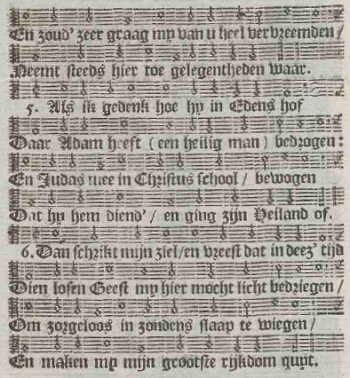 En zoud' zeer graag my van u heel vervreemden /
Neemt steeds hier toe gelegentheden waar.
5. Als ik gedenk hoe hy in Edens hof
Daar Adam heeft (een heilig man) bedrogen:
En Judas mee in Christus school / bewogen
Dat hy hem diend' / en ging zijn Heiland of.
6. Dan schrikt mijn ziel / en vreest dat in deez' tijd
Dien losen Geest my hier mocht licht bedriegen /
Om zorgeloos in zondens slaap te wiegen /
En maken my mijn grootste rijkdom quyt.